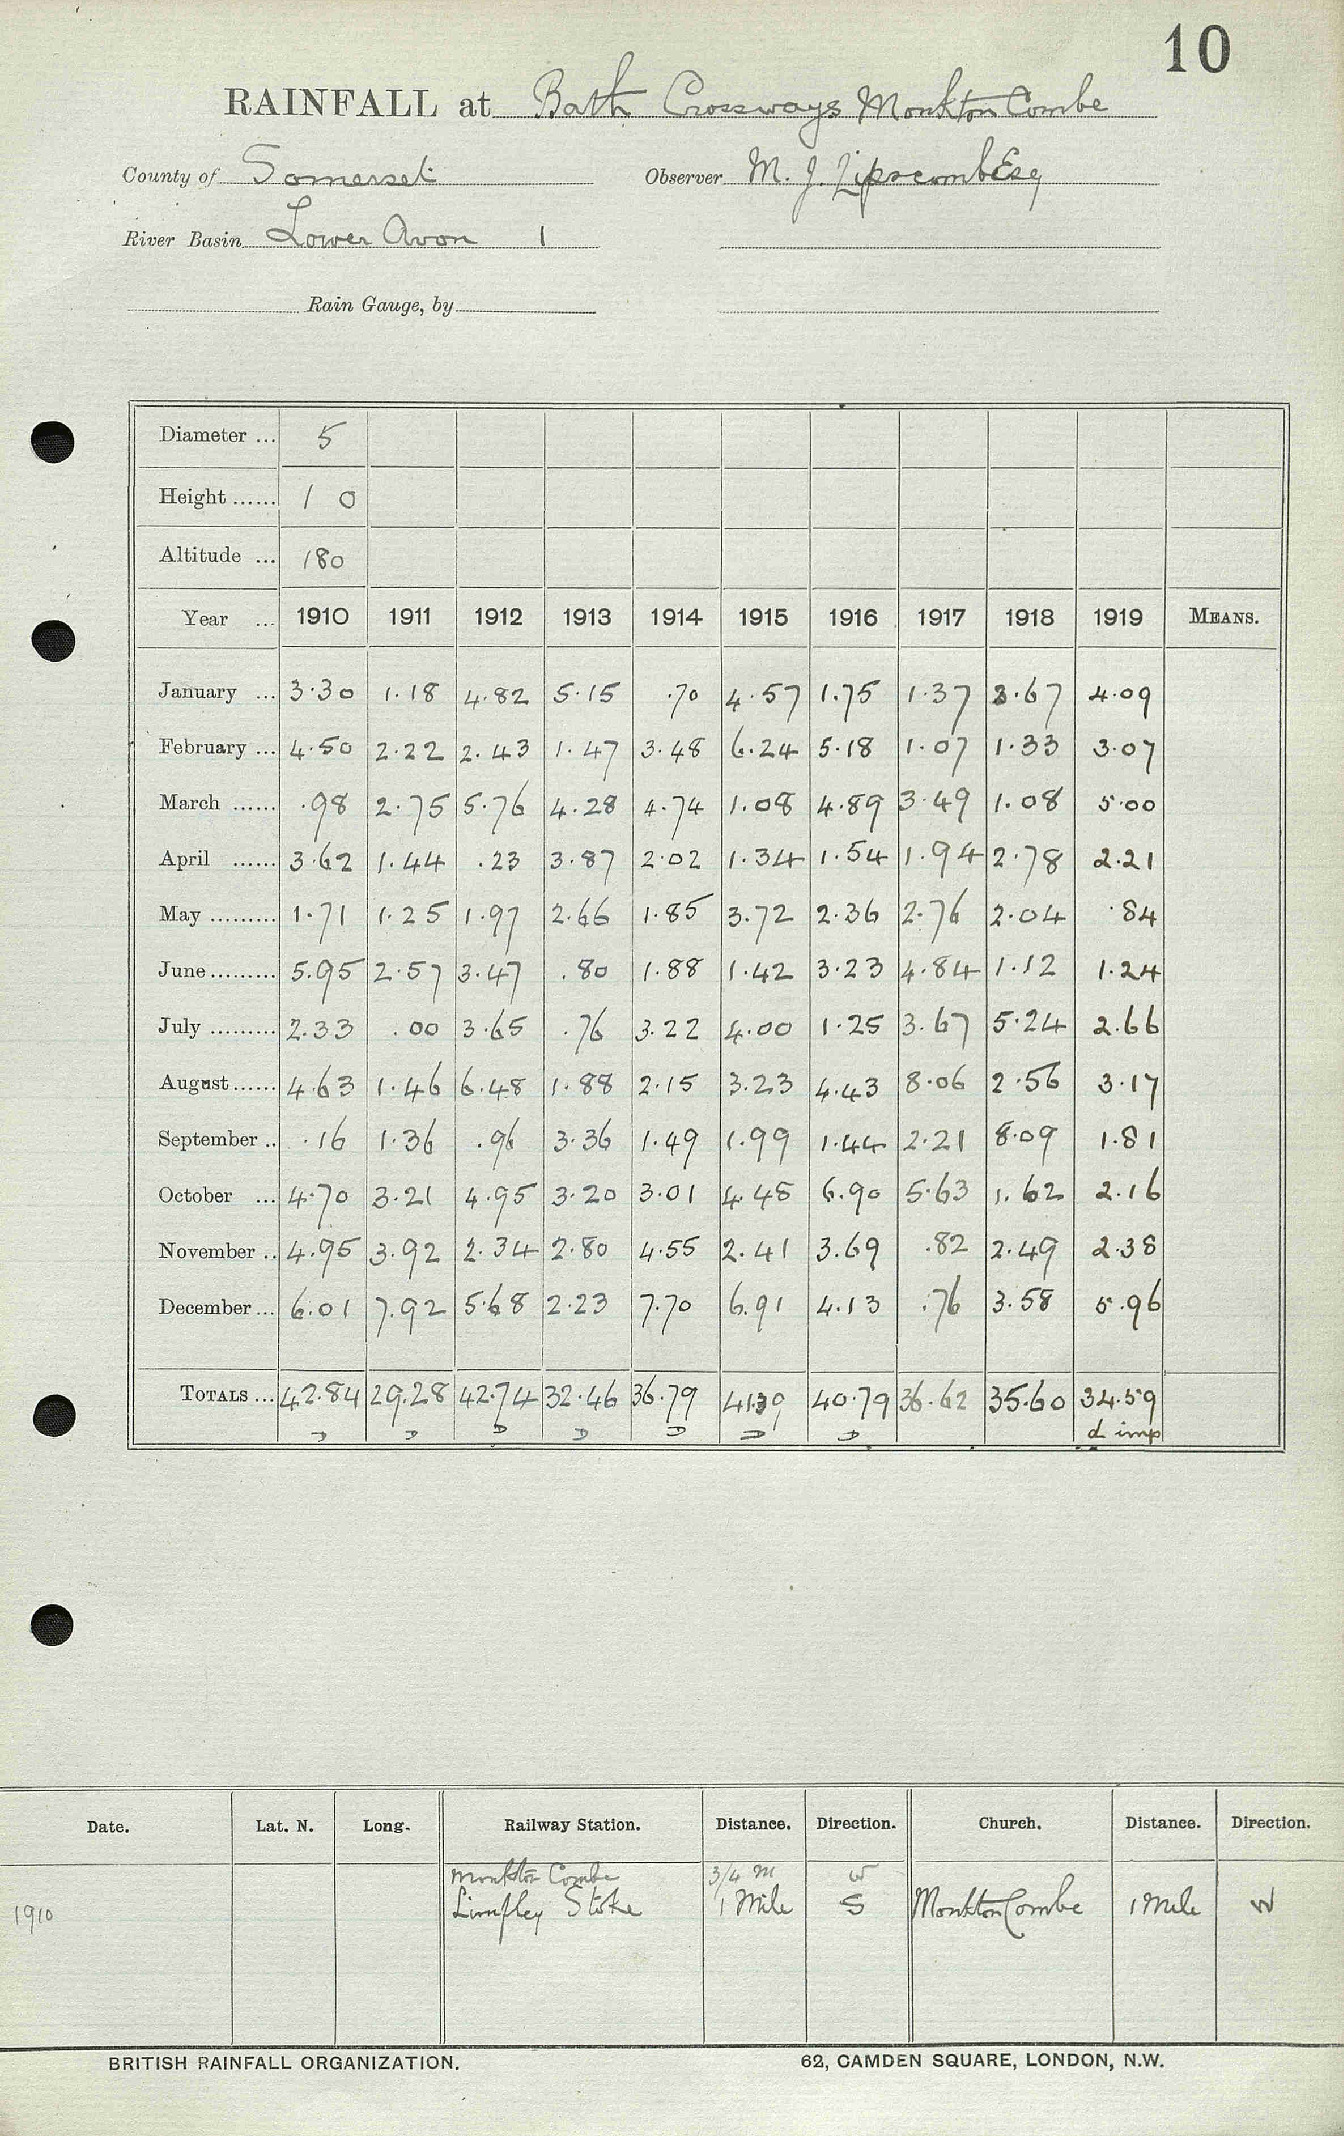 10
RAINFALL at Bath Crossways Monkton Combe
County of Somerset Observer M. J. Lipscomb Esq
River Basin Lower Avon 1
Rain Gauge, by
Diameter ... 5
Height ...... 1 0
Altitude ... 180
Year ... 1910 1911 1912 1913 1914 1915 1916 1917 1918 1919 MEANS.
January ... 3.30 1.18 4.82 5.15 .70 4.57 1.75 1.37 3.67 4.09
February ... 4.50 2.22 2.43 1.47 3.48 6.24 5.18 1.07 1.33 3.07
March ...... .98 2.75 5.76 4.28 4.74 1.08 4.89 3.49 1.08 5.00
April ...... 3.62 1.44 .23 3.87 2.02 1.34 1.54 1.94 2.78 2.21
May ......... 1.71 1.25 1.97 2.66 1.85 3.72 2.36 2.76 2.04 .84
June ......... 5.95 2.57 3.47 .80 1.88 1.42 3.23 4.84 1.12 1.24
July ......... 2.33 .00 3.65 .76 3.22 4.00 1.25 3.67 5.24 2.66
August ...... 4.63 1.46 6.48 1.88 2.15 3.23 4.43 8.06 2.56 3.17
September .. .16 1.36 .96 3.36 1.49 1.99 1.44 2.21 8.09 1.81
October ... 4.70 3.21 4.95 3.20 3.01 4.48 6.90 5.63 1.62 2.16
November .. 4.95 3.92 2.34 2.80 4.55 2.41 3.69 .82 2.49 2.38
December ... 6.01 7.92 5.68 2.23 7.70 6.91 4.13 .76 3.58 5.96
TOTALS ... 42.84 29.28 42.74 32.46 36.79 41.39 40.79 36.62 35.60 34.59
D D D D D D D d imp
Date. Lat. N. Long. Railway Station. Distance. Direction. Church. Distance. Direction.
Monkton Combe 3/4 m W
1910 Limpley Stoke 1 Mile S Monkton Combe 1 Mile W
BRITISH RAINFALL ORGANIZATION. 62, CAMDEN SQUARE, LONDON, N.W.